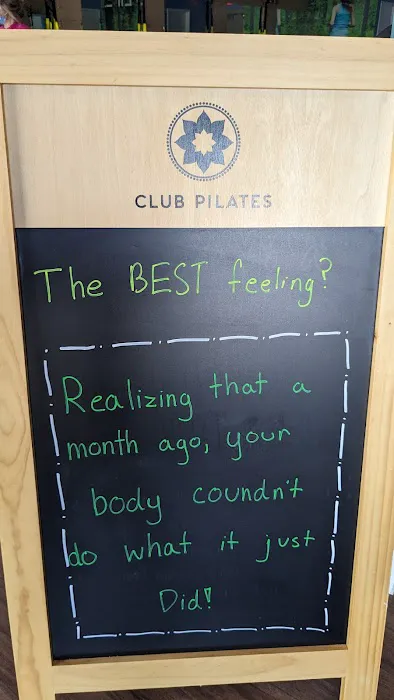 CLUB PILATES
The BEST feeling?
Realizing that a
month ago, your
body coundn't
do what it just
Did!